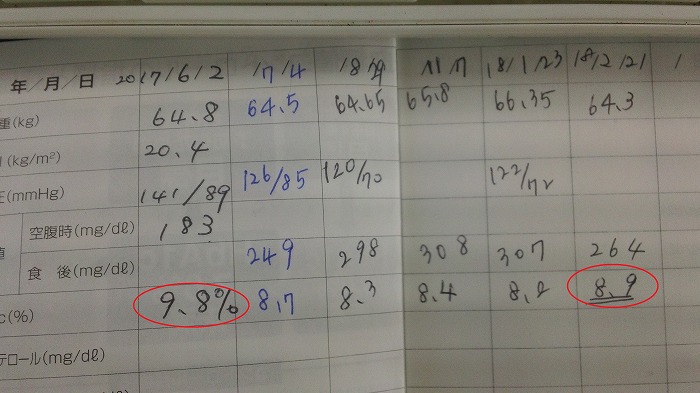 年/月/日 2017/6/2 /7/4 11/7 18/1/23 18/2/21
重(kg) 64.8 64.5 64.65 65.8 66.35 64.3
(kg/m²) 20.4
(mmHg) 141/89 126/85 120/70 122/72
空腹時(mg/dℓ) 183
食 後(mg/dℓ) 249 298 308 307 264
c(%) 9.8% 8.7 8.3 8.4 8.2 8.9
テロール(mg/dℓ)